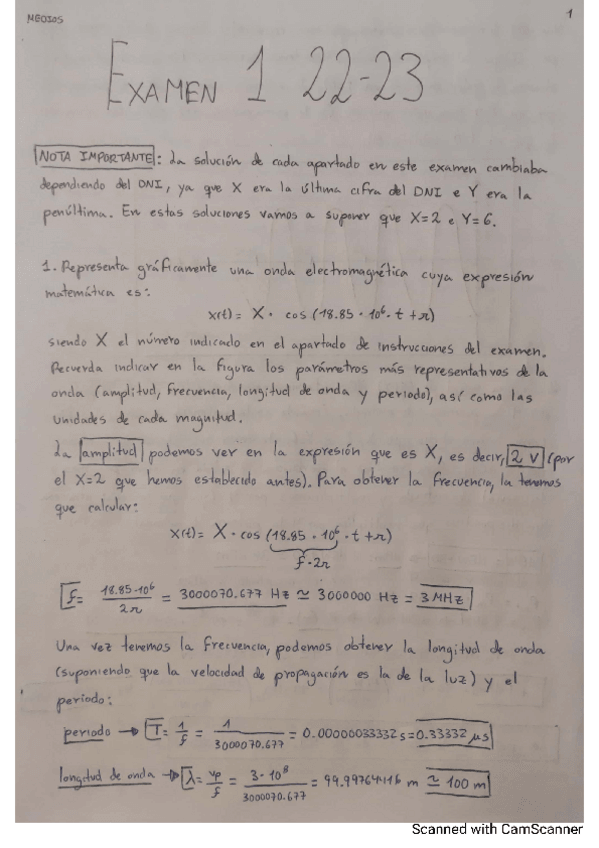 MEDIOS
1
EXAMEN 1 22-23
NOTA IMPORTANTE: La solución de cada apartado en este examen cambiaba
dependiendo del DNI, ya que X era la última cifra del DNI e Y era la
penúltima. En estas soluciones vamos a suponer que X=2 e Y=6.
1. Representa gráficamente una onda electromagnética cuya expresión
matemática es:
x(t)= X · cos (18.85 · 10⁶ · t + π)
siendo X el número indicado en el apartado de instrucciones del examen.
Recuerda indicar en la figura los parámetros más representativos de la
onda (amplitud, frecuencia, longitud de onda y periodo), así como las
unidades de cada magnitud.
La amplitud podemos ver en la expresión que es X, es decir, 2 V (por
el X=2 que hemos establecido antes). Para obtener la frecuencia, la tenemos
que calcular:
x(t)= X · cos (18.85 · 10⁶ · t + π)
f·2π
f= 18.85·10⁶ / 2π = 3000070.677 Hz ≃ 3000000 Hz = 3 MHz
Una vez tenemos la frecuencia, podemos obtener la longitud de onda
(suponiendo que la velocidad de propagación es la de la luz) y el
periodo:
periodo → T= 1/f = 1/3000070.677 = 0.00000033332 s = 0.33332 μs
longitud de onda → λ= vp/f = 3·10⁸/3000070.677 = m ≃ 100 m
Scanned with CamScanner